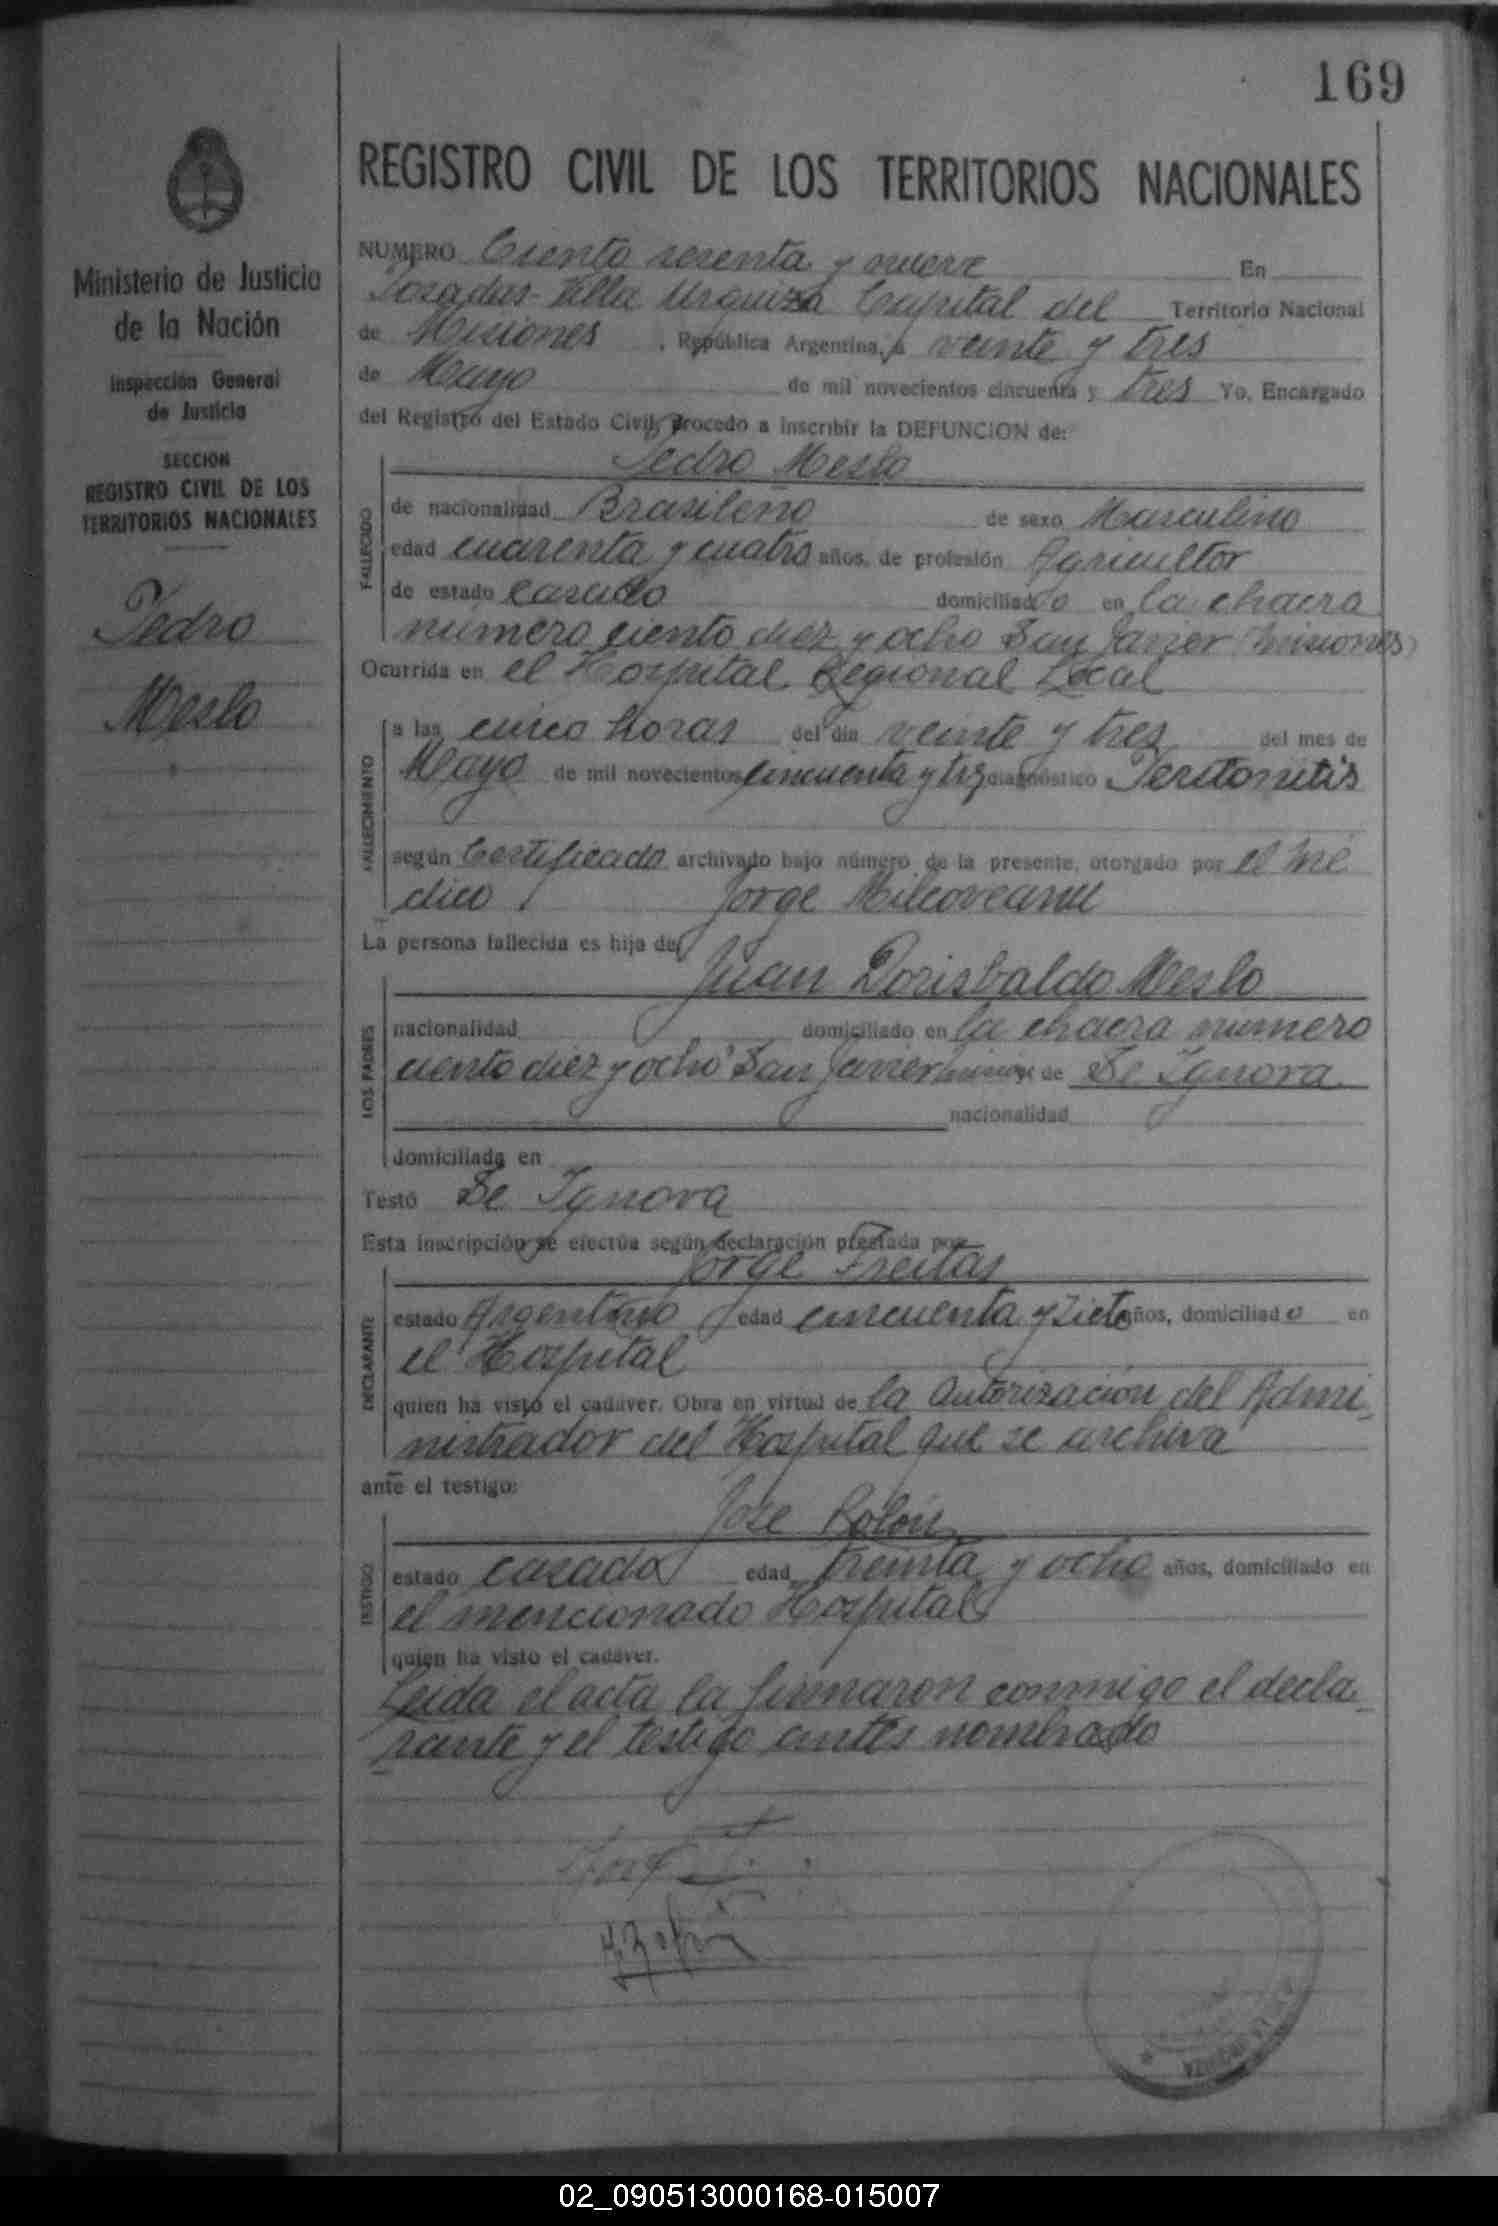 169
REGISTRO CIVIL DE LOS TERRITORIOS NACIONALES
Ministerio de Justicia
de la Nación
Inspección General
de Justicia
SECCION
REGISTRO CIVIL DE LOS
TERRITORIOS NACIONALES
Pedro
Meslo
NUMERO Ciento sesenta y nueve En
Posadas - Villa Urquiza Capital del Territorio Nacional
de Misiones , República Argentina, a veinte y tres
de Mayo de mil novecientos cincuenta y tres Yo, Encargado
del Registro del Estado Civil, procedo a inscribir la DEFUNCION de:
Pedro Meslo
FALLECIDO
de nacionalidad Brasileño de sexo Masculino
edad cuarenta y cuatro años, de profesión Agricultor
de estado casado domiciliado en la chacra
número ciento diez y ocho San Javier (Misiones)
Ocurrida en el Hospital Regional Local
FALLECIMIENTO
a las cinco horas del día veinte y tres del mes de
Mayo de mil novecientos cincuenta y tres diagnóstico Peritonitis
según Certificado archivado bajo número de la presente, otorgado por el mé
dico Jorge Milcoveanu
La persona fallecida es hija de
Juan Dorisbaldo Meslo
LOS PADRES
nacionalidad domiciliado en la chacra número
ciento diez y ocho San Javier Misiones y de Se Ignora
nacionalidad
domiciliada en
Testó Se Ignora
Esta inscripción se efectúa según declaración prestada por
Jorge Freitas
DECLARANTE
estado Argentino edad cincuenta y siete años, domiciliado en
el Hospital
quien ha visto el cadáver. Obra en virtud de la autorización del Admi
nistrador del Hospital que se archiva
ante el testigo:
José Rolón
TESTIGO
estado casado edad treinta y ocho años, domiciliado en
el mencionado Hospital
quien ha visto el cadáver.
Leida el acta la firmaron conmigo el decla
rante y el testigo antes nombrado
02_090513000168-015007